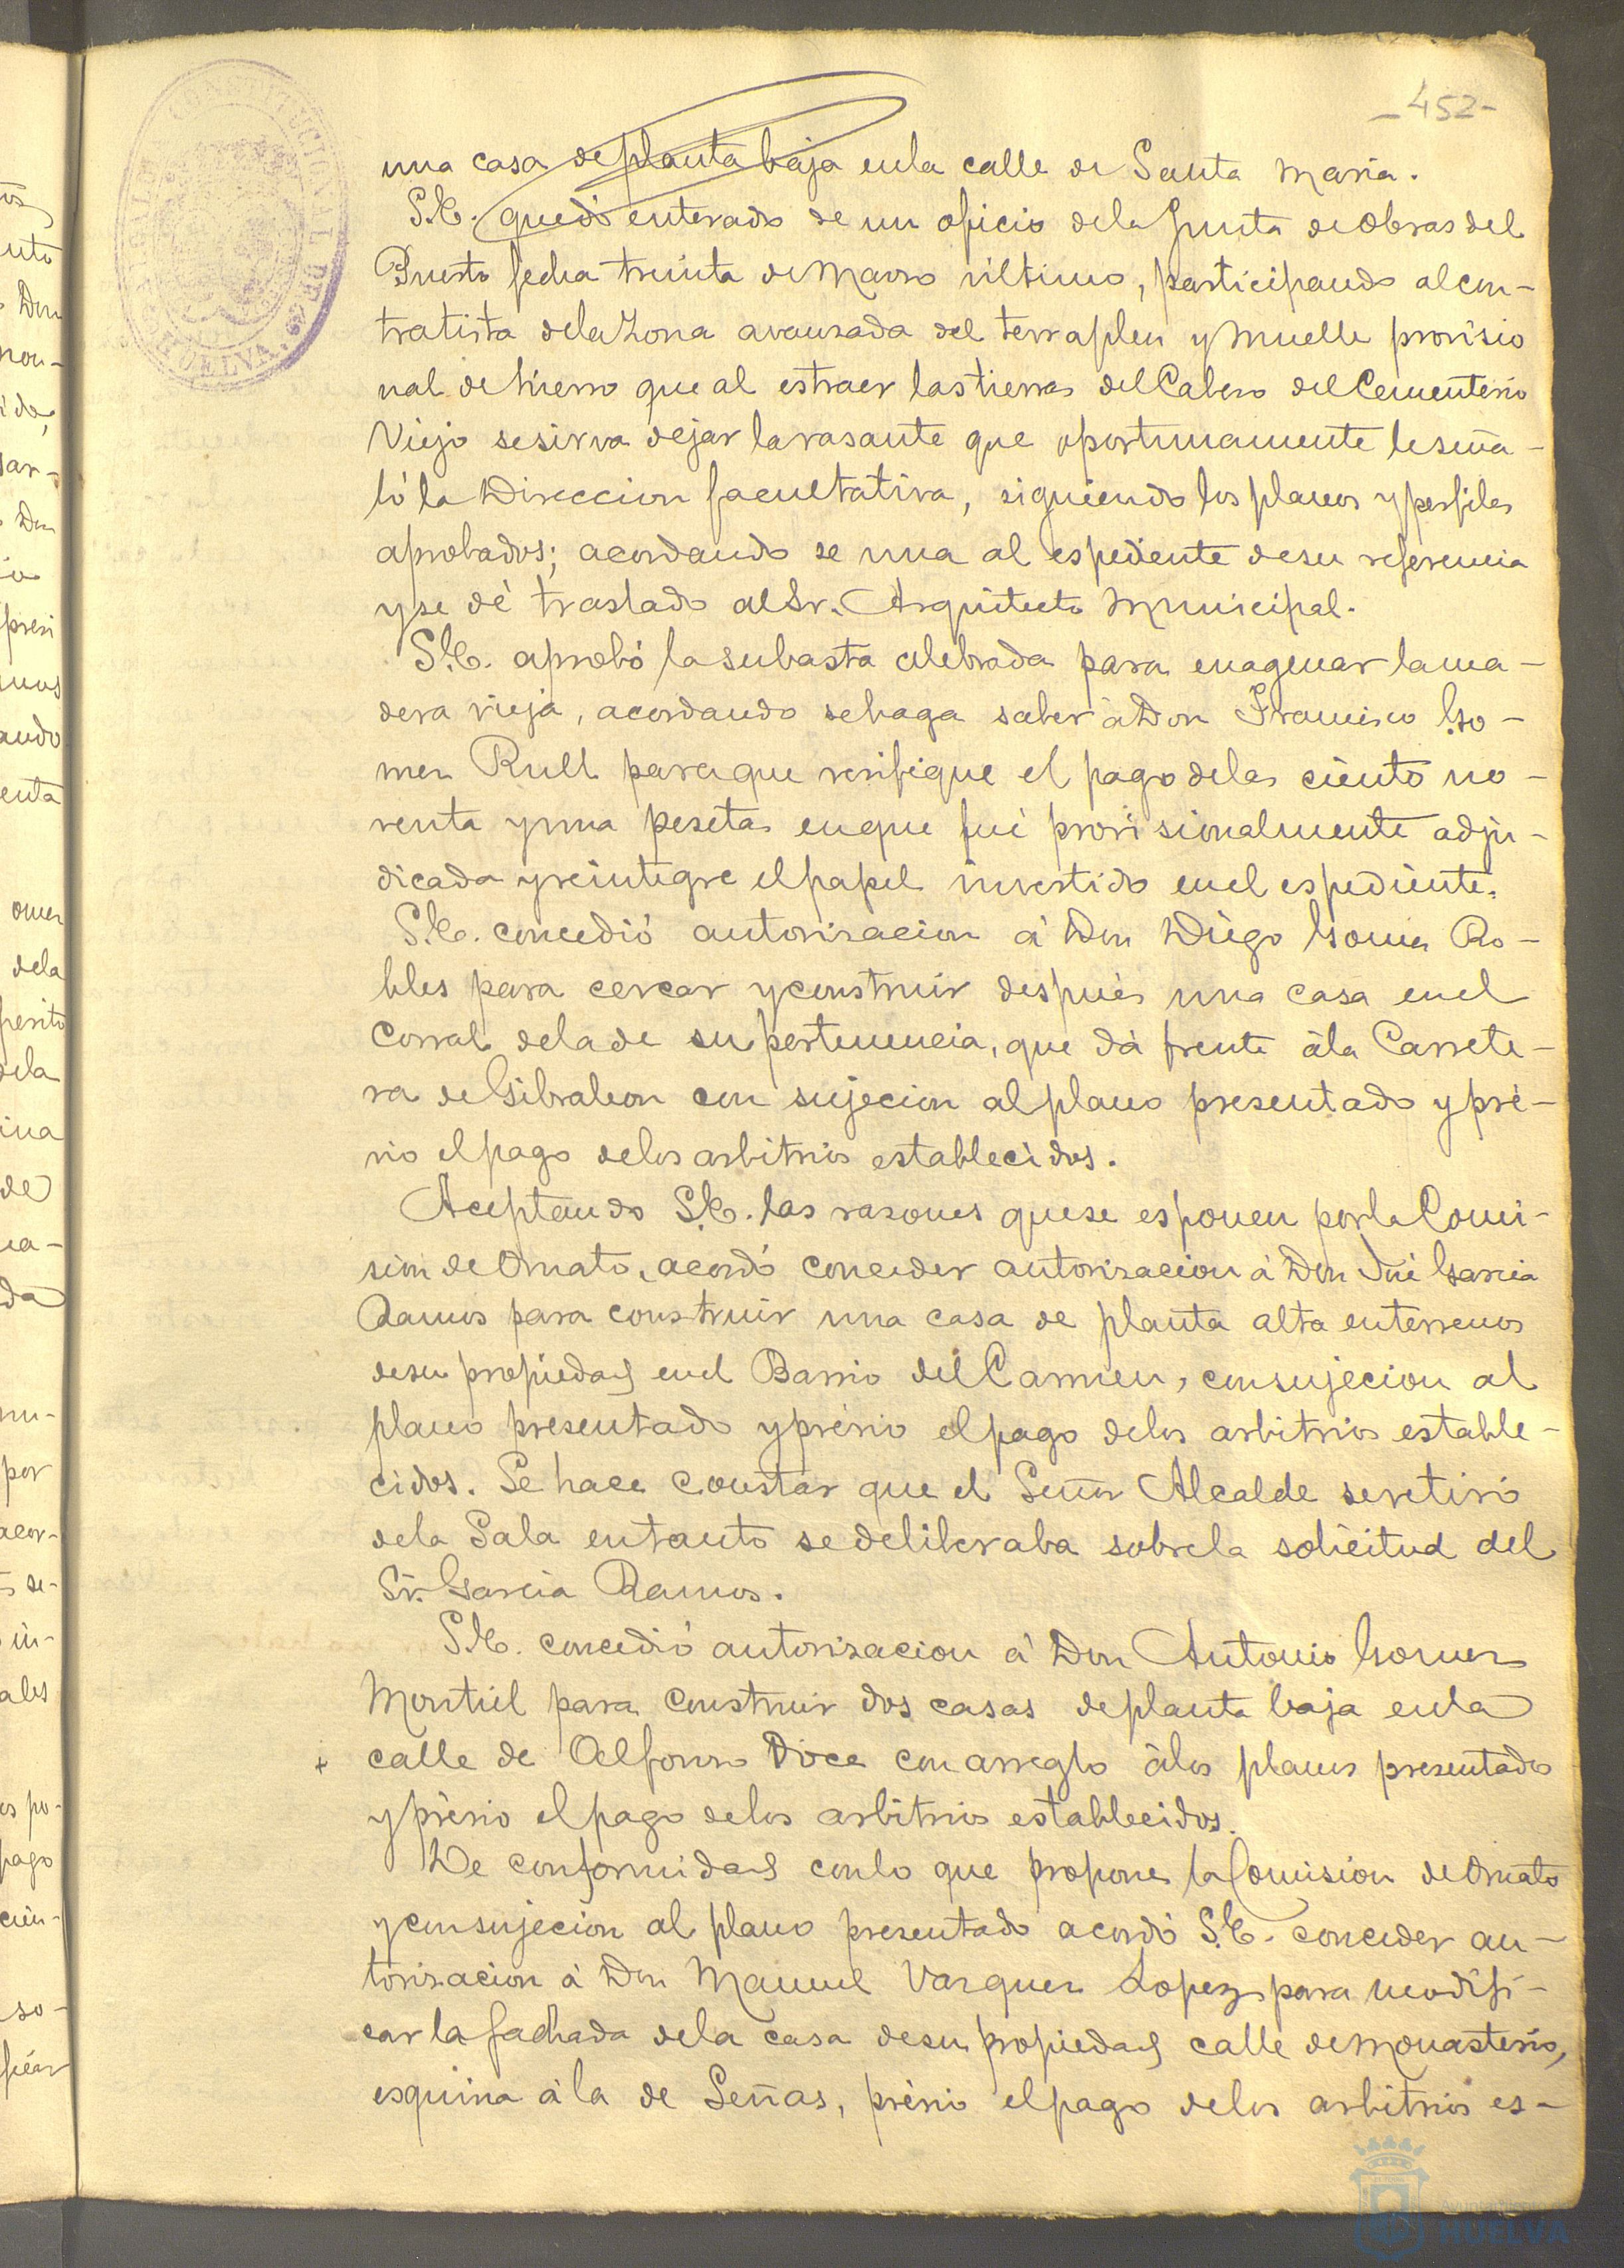 -452-
una casa de planta baja en la calle de Santa Maria.
S.E. quedó enterado de un oficio de la Junta de Obras del
Puerto fecha treinta de Marzo último, participando al con-
tratista de la Zona avanzada del terraplen y muelle provisio
nal de hierro que al estraer las tierras del Cabezo del Cementerio
Viejo se sirva dejar la rasante que oportunamente le seña-
ló la Direccion facultativa, siguiendo los planos y perfiles
aprobados; acordando se una al espediente de su referencia
y se dé traslado al Sr. Arquitecto Municipal.
S.E. aprobó la subasta celebrada para enagenar la ma-
dera vieja, acordando se haga saber á Don Francisco Go-
mez Rull para que verifique el pago de las ciento no-
venta y una pesetas en que fué provisionalmente adju-
dicada y reintegre el papel invertido en el espediente.
S.E. concedió autorizacion á Don Diego Gomez Ro-
bles para cercar y construir después una casa en el
corral de la de su pertenencia, que dá frente á la Carrete-
ra de Gibraleon con sujecion al plano presentado y pré-
vio el pago de los arbitrios establecidos.
Aceptando S.E. las razones que se esponen por la Comi-
sion de Ornato, acordó conceder autorizacion á Don José Garcia
Ramos para construir una casa de planta alta en terrenos
de su propiedad en el Barrio del Carmen, con sujecion al
plano presentado y prévio el pago de los arbitrios estable-
cidos. Se hace constar que el Señor Alcalde se retiró
de la Sala en tanto se deliberaba sobre la solicitud del
Sr. Garcia Ramos.
S.E. concedió autorizacion á Don Antonio Gomez
Montiel para construir dos casas de planta baja en la
+ calle de Alfonso Doce con arreglo á los planos presentados
y prévio el pago de los arbitrios establecidos.
De conformidad con lo que propone la Comision de Ornato
y con sujecion al plano presentado acordó S.E. conceder au-
torizacion á Don Manuel Vazquez Lopez para modifi-
car la fachada de la casa de su propiedad calle de Monasterio,
esquina á la de Señas, prévio el pago de los arbitrios es-
Ayuntamiento
HUELVA